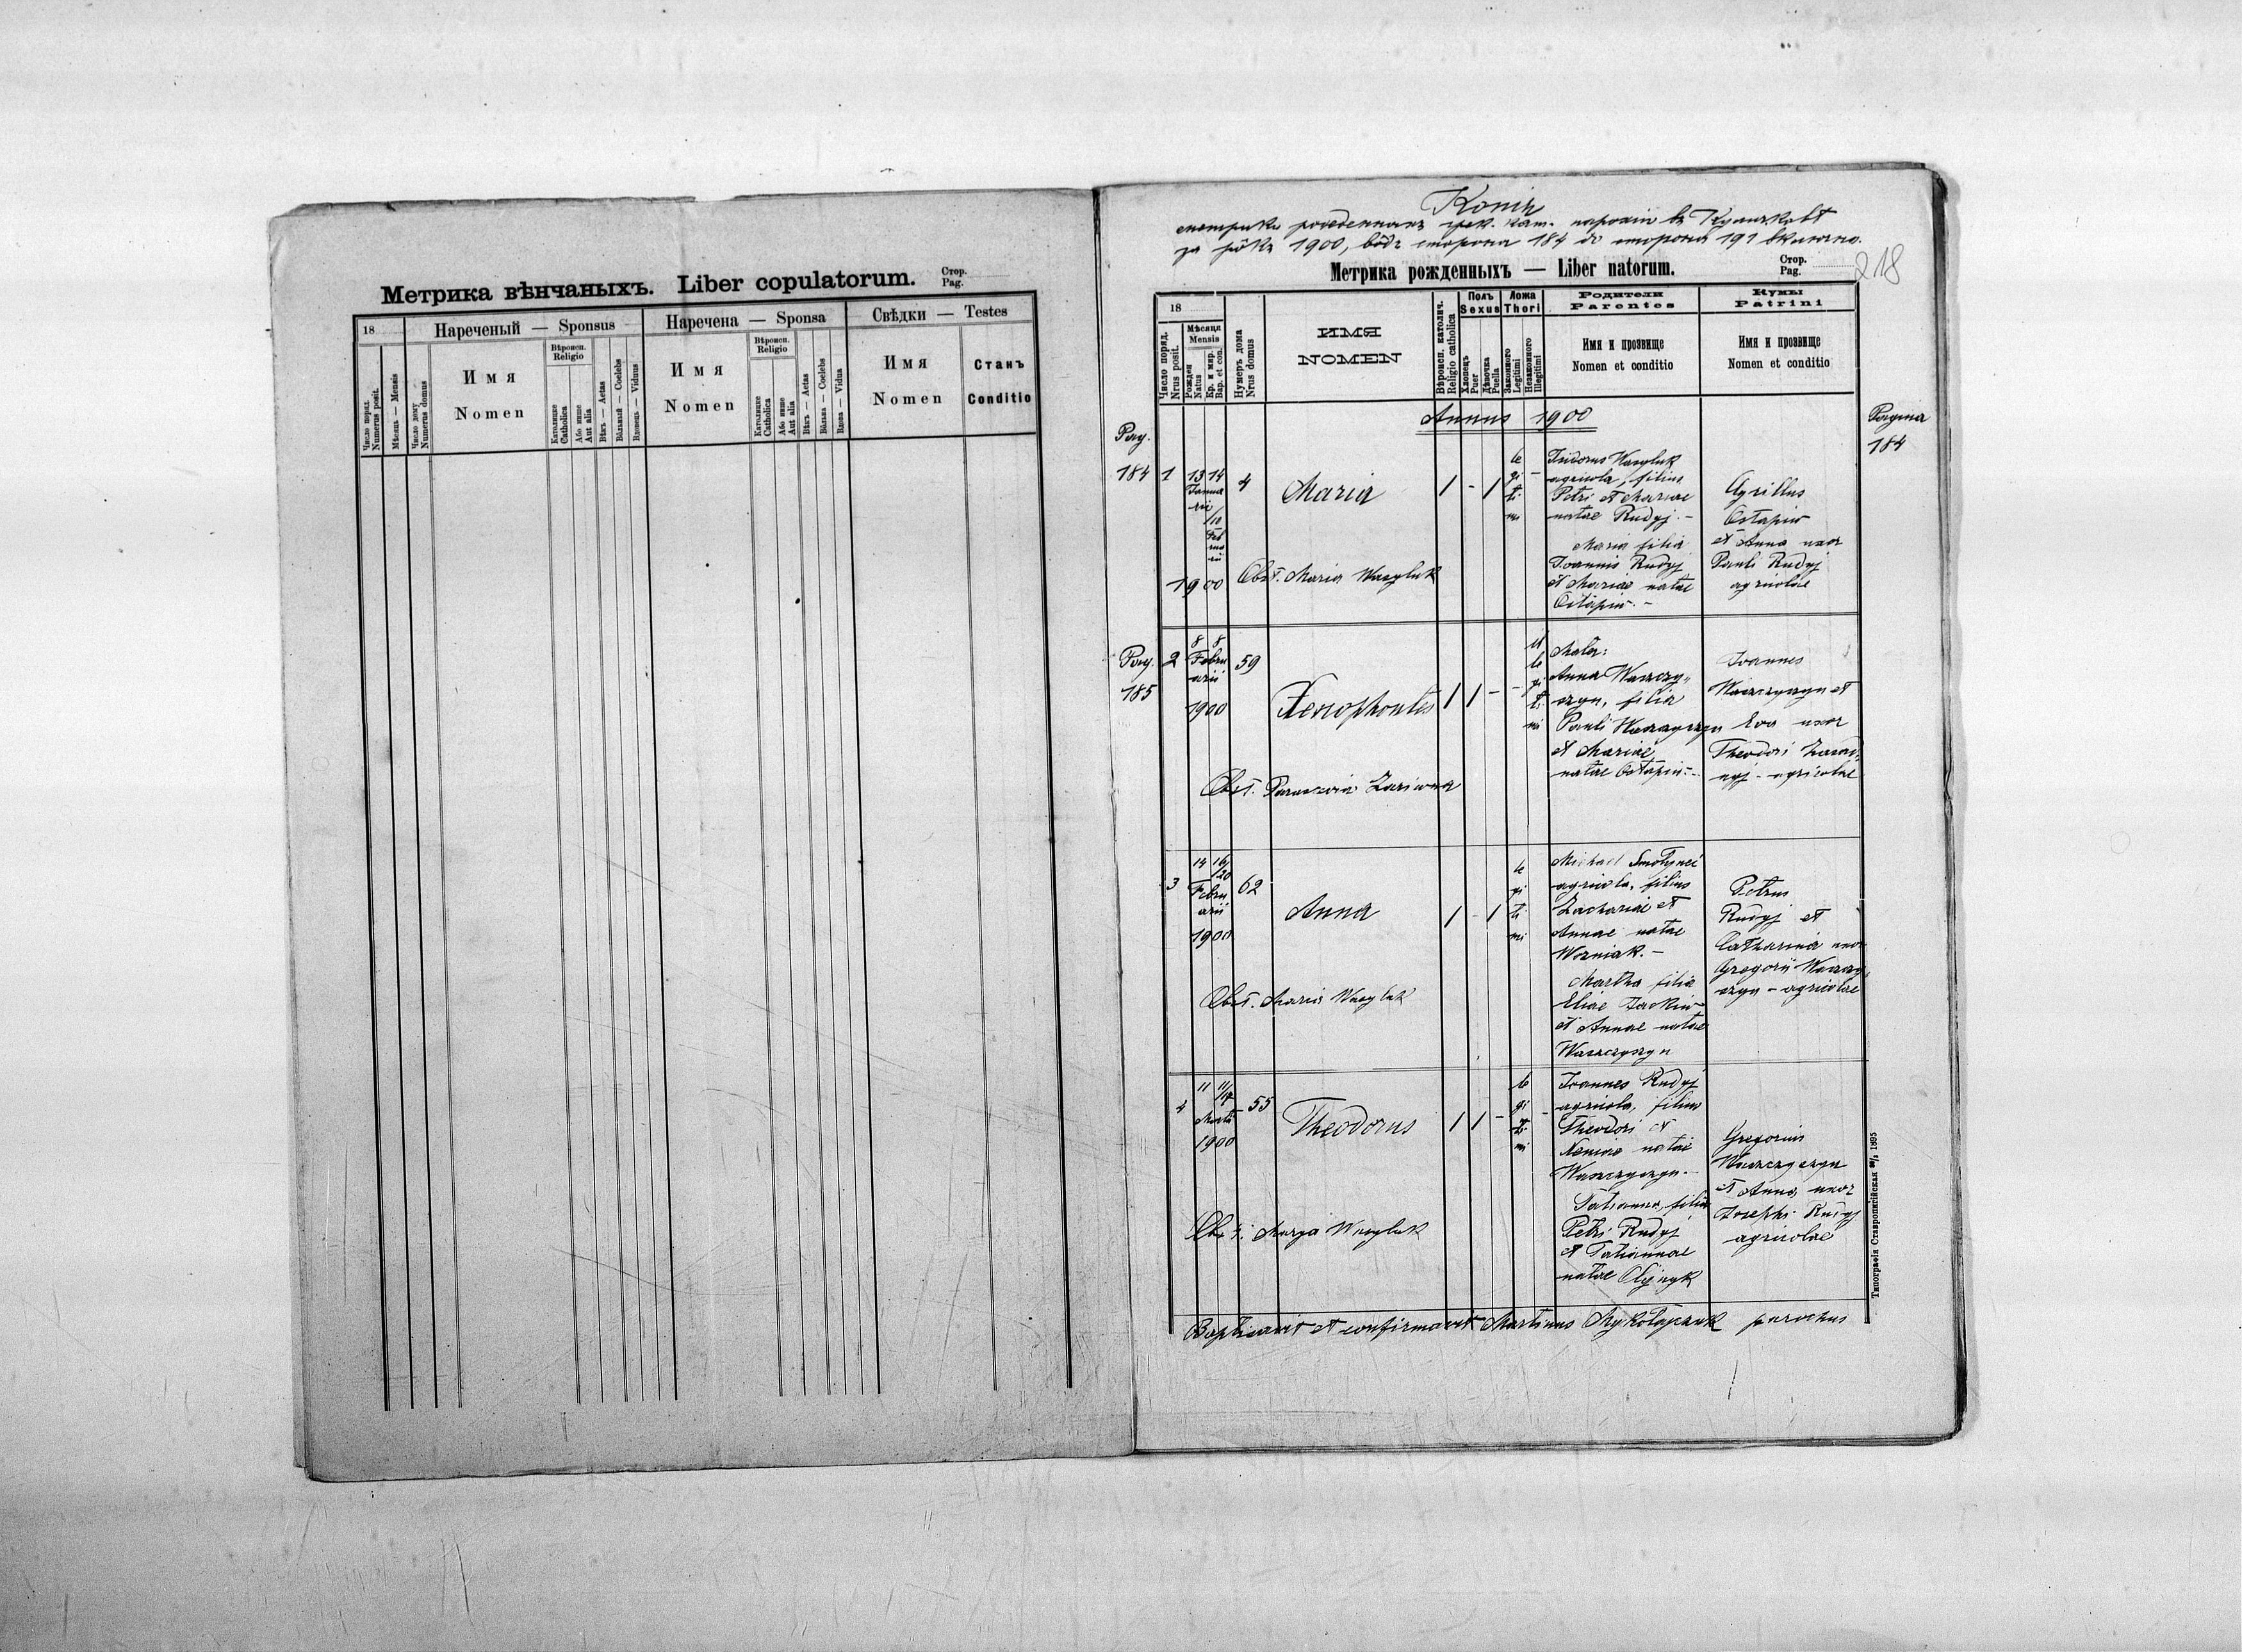 Метрика вѣнчаныхъ. Liber copulatorum. Стор. Pag.
18
Нареченый — Sponsus
Наречена — Sponsa
Свѣдки — Testes
Число поряд. Numerus posit.
Мѣсяць — Mensis
Число дому Numerus domus
Имя
Nomen
Вѣроисп. Religio
Католицке Catholica
Або инше Aut alia
Вѣкъ — Aetas
Вôльный — Coelebs
Вдовець — Viduus
Имя
Nomen
Вѣроисп. Religio
Католицке Catholica
Або инше Aut alia
Вѣкъ — Aetas
Вôльна — Coelebs
Вдова — Vidua
Имя
Nomen
Станъ
Conditio
Копія
метрики рожденныхъ грек. кат. парохіи въ
за рôкъ 1900, вôдъ сторона 184 до сторона 191 включно.
218
Метрика рожденныхъ — Liber natorum. Стор. Pag.
18
Число поряд. Nrus posit.
Мѣсяця Mensis
Рожден Natus
Кр. и мир. Bap. et con.
Нумеръ дома Nrus domus
ИМЯ
NOMEN
Вѣроисп. католич. Religio catholica
Полъ Sexus
Хлопецъ Puer
Дѣвочка Puella
Ложа Thori
Законного Legitimi
Незаконного Illegitimi
Родители
Parentes
Имя и прозвище
Nomen et conditio
Кумы
Patrini
Имя и прозвище
Nomen et conditio
Annus 1900
Pagina
184
Pag.
184
1
13 14
Januarii
/10
Februarii
1900
4
Maria
1 - 1
legitimi
-
Isidorus Wasyluk
agricola, filius
Petri et Mariae
natae Rudyj. -
Maria filia
Joannis Rudyj
et Mariae natae
Ostapiw. -
Cyrillus
Ostapiw
et Anna uxor
Pauli Rudyj
agricolae
Obst. Maria Wasyluk
Pag.
185
2
8 8
Februarii
1900
59
Xenophontes
1 1 - -
illegitimi
Mater:
Anna Waszczy„
szyn, filia
Pauli Waszczyszyn
et Mariae
natae Ostapiw. -
Joannes
Waszczyszyn et
Eva uxor
Theodori
agricolae
Obst. Parascevia Zariwna
3
14 16/20
Februarii
1900
62
Anna
1 - 1
legitimi
Michael Smotynec
agricola, filius
Zachariae et
Annae natae
Wozniak. -
Martha filia
Eliae Jackiw
et Annae natae
Waszczyszyn
Petrus
Rudyj et
Catharina uxor
Gregorii Waszczy„
szyn - agricolae
Obst. Maria Wasyluk
4
11 11/
Martii
1900
55
Theodorus
1 1 -
legitimi
-
Joannes Rudyj
agricola, filius
Theodori et
Xeniae natae
Waszczyszyn. -
Tatianna, filia
Petri Rudyj
et Tatiannae
natae Olijnyk
Gregorius
Waszczyszyn
et Anna uxor
Josephi Rudyj
agricolae
Obst. Marya Wasyluk
Baptisavit et confirmavit Martinus Mykołajczuk parochus
Типографія Ставропигійская 1895